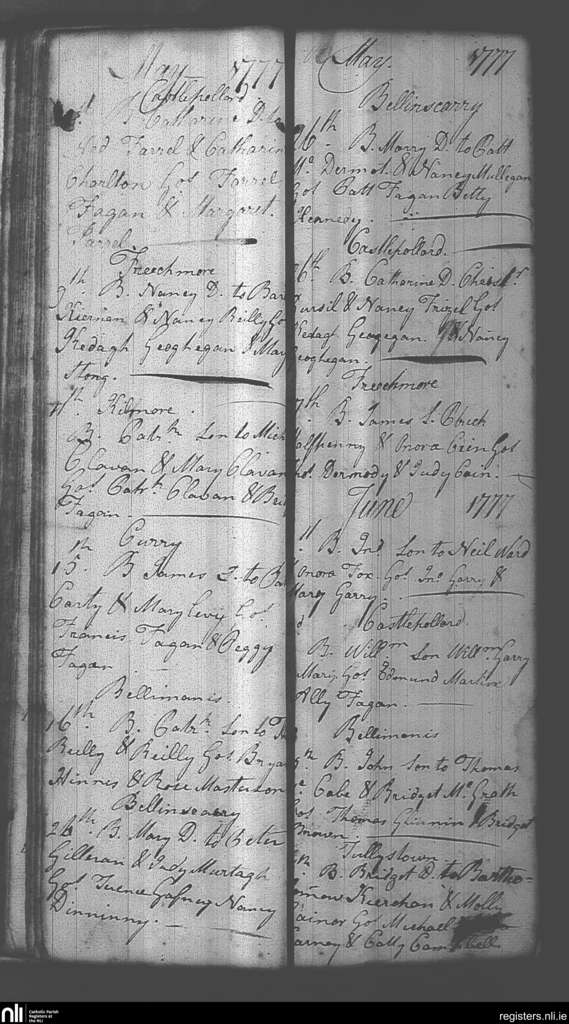 May 1777
Castlepollard
B. Catherine D. to
Farrel & Catharin
Charlton Gos Farrel
Fagan & Margaret
Farrel
Freechmore
th B. Nancy D. to Bar
Kiernan & Nancy Reilly Go
Kedagh Geoghegan & Mary
Hong.
th Kilmore
B. Patrk Son to Mich
Clavan & Mary Clavan
Gos Patrk Clavan & Bri
Fagan
Curry
15th B. James S. to
Carty & Mary Gos
Francis Fagan & Peggy
Fagan
Bellimanis
16th B. Patrk Son to Th
Reilly & Reilly Gos Brya
Hinnes & Rose Masterson
Bellinscarry
26th B. Mary D. to Peter
Gilleran & Judy Murtagh
Gos Terence Gafney Nancy
Dinninny.
May. 1777
Bellinscarry
26th B. Marry D. to Patt
Mc Dermot & Nancy Mullegan
Gos Patt Fagan Betty
Kennedy.
Castlepollard.
26th B. Catharine D. Christr
Pursil & Nancy Frizel Gos
Kedagh Geogegan & Nancy
Geoghegan.
Freechmore
7th B. James S.
alfpenny & Onora Gos
Dermody & Judy Cain.
June 1777
1st B. Jno Son to Neil Ward
Onora Fox. Gos Jno Garry &
Mary Garry
Castlepollard.
B. Willm Son Willm Garry
Mary Gos Edmund
Ally Fagan.
Bellimanis
th B. John Son to Thomas
Mc Cabe & Bridget Mc Grath
Gos Thomas & Bridget
Brown.
Tullystown
B. Bridget D. to Bartho-
omew Kiernan & Molly
ainor Gos Michael
arney & Catty Campbell
nli
Catholic Parish
Registers at
the NLI
registers.nli.ie